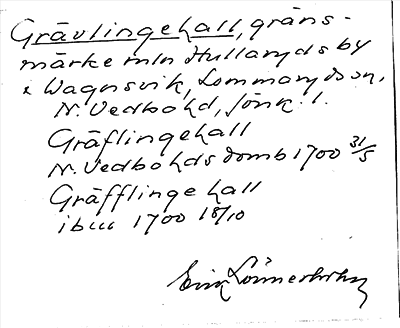 Grävlingehall, gräns-
märke mln Hullaryds by
Wagnsvik, Lommaryds sn,
N. Vedbo hd, Jönk. l.
Gräflingehall
N. Vedbo hds domb 1700 31/5
Gräfflinge hall
ib 1700 18/10
Erik